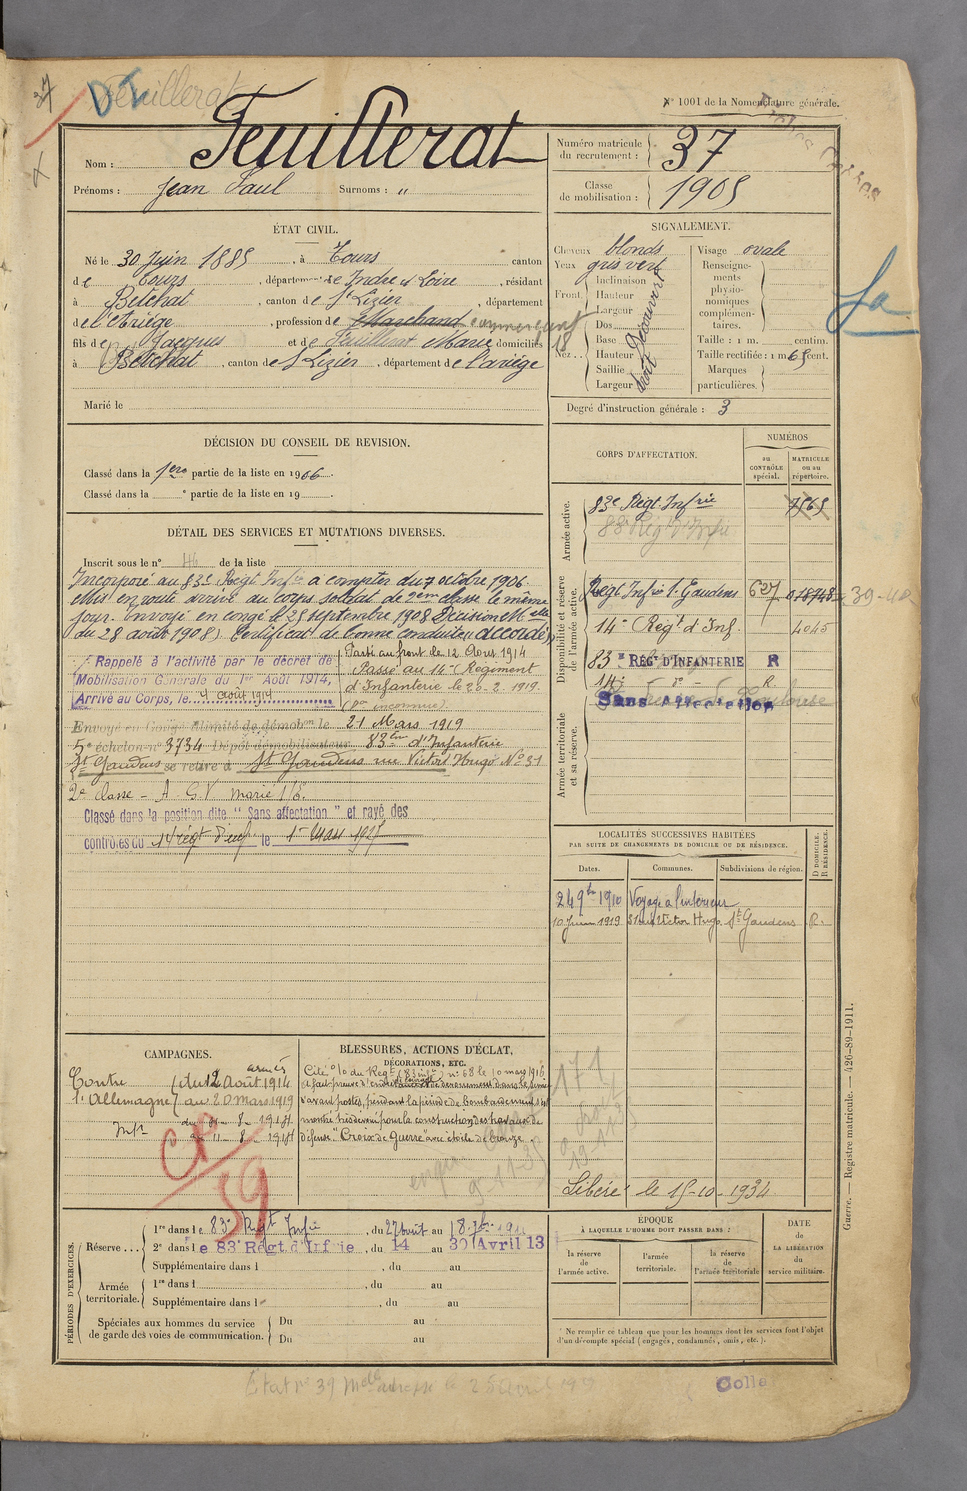 37
Feuillerat
N° 1001 de la Nomenclature générale.
Nom : Feuillerat
Prénoms : Jean Paul Surnoms : "
Numéro matricule du recrutement : 37
Classe de mobilisation : 1905
ÉTAT CIVIL.
Né le 30 Juin 1885, à Tours canton
de Tours, département de Indre et Loire, résidant
à Betchat, canton de St Lizier, département
de l'Ariège, profession de Marchand commerçant
fils de Jacques et de Feuillerat Marie domiciliés
à Betchat, canton de St Lizier, département de l'ariège
Marié le
SIGNALEMENT.
Cheveux blonds
Yeux gris vert
Front Inclinaison
Hauteur
Largeur
découvert
Nez Dos
Base
Hauteur
Saillie
Largeur
droit
Visage ovale
Renseignements physionomiques complémentaires.
Taille : 1 m. centim.
Taille rectifiée : 1 m 65 cent.
Marques particulières.
Degré d'instruction générale : 3
DÉCISION DU CONSEIL DE REVISION.
Classé dans la 1ere partie de la liste en 1906.
Classé dans la e partie de la liste en 19
DÉTAIL DES SERVICES ET MUTATIONS DIVERSES.
Inscrit sous le n° 46 de la liste
Incorporé au 83e Régt Infie à compter du 7 octobre 1906.
Mis en route arrivé au corps soldat de 2eme classe le même
jour. Envoyé en congé le 25 septembre 1908 (Décision Mlle
du 28 août 1908). Certificat de bonne conduite "accordé".
Rappelé à l'activité par le décret de
Mobilisation Générale du 1er Août 1914,
Arrivé au Corps, le 4 août 1914
Parti au front le 12 Aout 1914
Passé au 14e Régiment
d'Infanterie le 20-2-1919.
Envoyé en Congé illimité de démobon le 21 Mars 1919
5e échelon n° 3734 Dépôt démobilisateur 83eme d'Infanterie
St Gaudens se retire à St Gaudens rue Victor Hugo N° 51
Classé dans la position dite "Sans affectation" et rayé des
contrôles du 14e Régt d'Inf le 1er Mars 1927
CORPS D'AFFECTATION.
NUMÉROS
au CONTRÔLE spécial.
MATRICULE ou au répertoire.
Armée active.
83e Régt Infrie 7565
83e Régt d'Infie
Disponibilité et réserve de l'armée active.
Régt Infie St Gaudens 627 018748
14e Régt d'Inf. 4045
83e RÉGt D'INFANTERIE R
14e do R.
Sans affectation
Armée territoriale et sa réserve.
LOCALITÉS SUCCESSIVES HABITÉES
PAR SUITE DE CHANGEMENTS DE DOMICILE OU DE RÉSIDENCE.
Dates. Communes. Subdivisions de région. D DOMICILE. R RÉSIDENCE.
24 9bre 1910 Voyage à l'intérieur
10 Juin 1919 51 rue Victor Hugo St Gaudens R.
Libéré le 15-10-1934
CAMPAGNES.
Contre l'Allemagne
armées
du 12 Août 1914
au 20 mars 1919
BLESSURES, ACTIONS D'ÉCLAT,
DÉCORATIONS, ETC.
Cité à l'o/ du Regt (83e Infie) n° 68 le 10 mars 1916,
"Croix de Guerre" avec étoile de bronze.
CP
59
PÉRIODES D'EXERCICES.
Réserve... 1re dans le 83e Régt Infie, du 27 août au
2e dans le 83e Régt. d'Infrie, du 14 au 30 Avril 13
Supplémentaire dans l , du au
Armée territoriale. 1re dans l , du au
Supplémentaire dans l , du au
Spéciales aux hommes du service de garde des voies de communication. Du au
Du au
ÉPOQUE
À LAQUELLE L'HOMME DOIT PASSER DANS :
la réserve de l'armée active.
l'armée territoriale.
la réserve de l'armée territoriale
DATE DE LA LIBÉRATION du service militaire.
* Ne remplir ce tableau que pour les hommes dont les services font l'objet
d'un décompte spécial (engagés, condamnés, omis, etc.).
Guerre. — Registre matricule. — 426-89-1911.
Colle